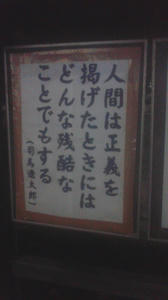 人間は正義を
掲げたときには
どんな残酷な
ことでもする
(司馬遼太郎)